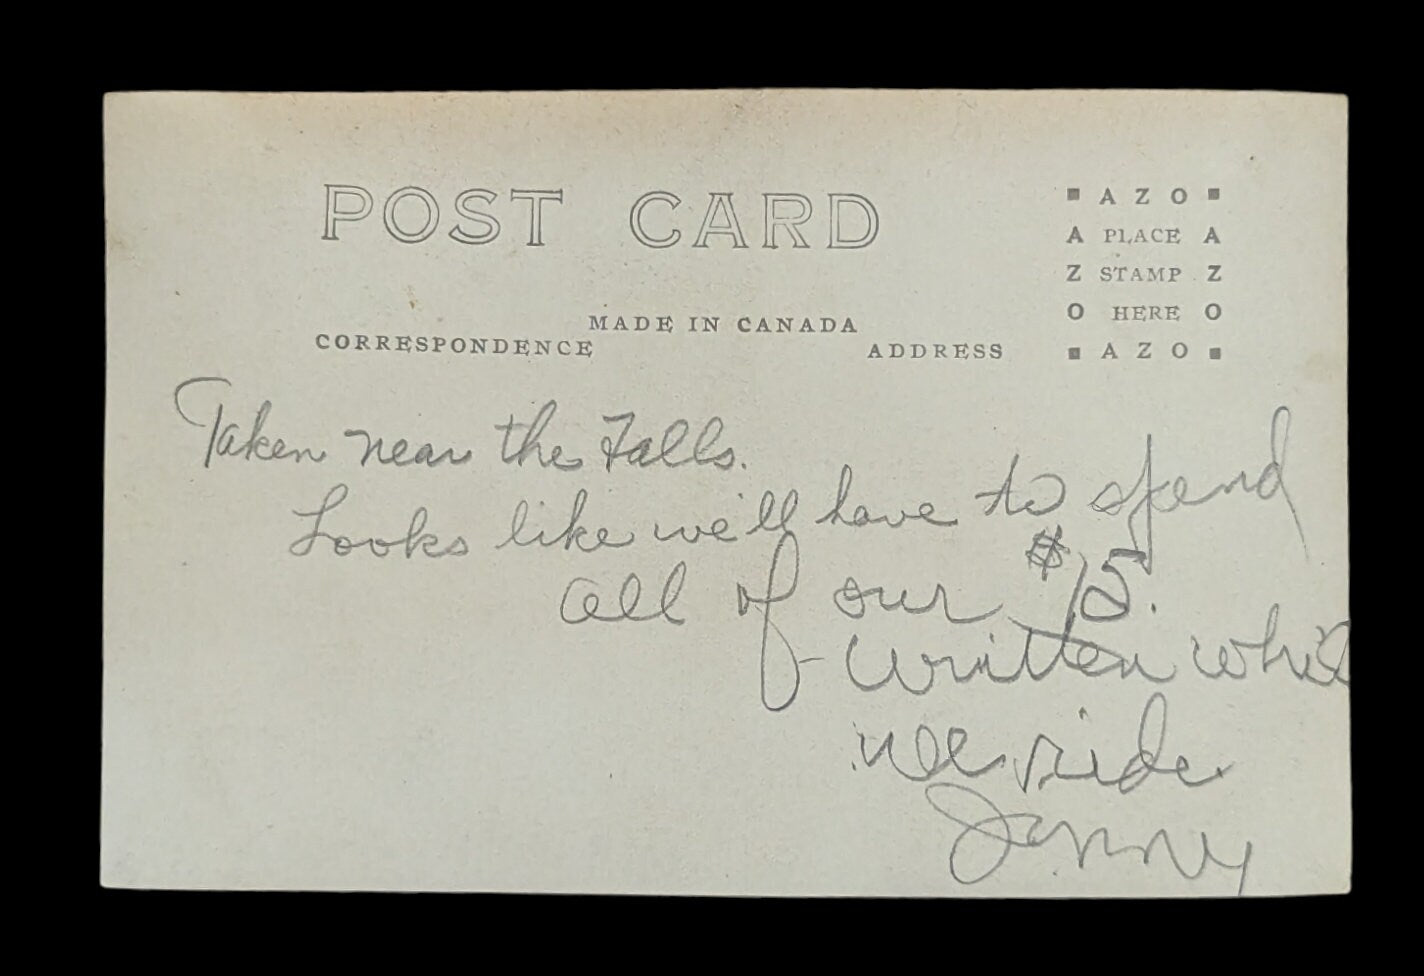 POST CARD
MADE IN CANADA
CORRESPONDENCE
ADDRESS
A Z O
A PLACE A
Z STAMP Z
O HERE O
A Z O
Taken near the Falls.
Looks like we'll have to spend
all of our $15.
Written whil
we ride